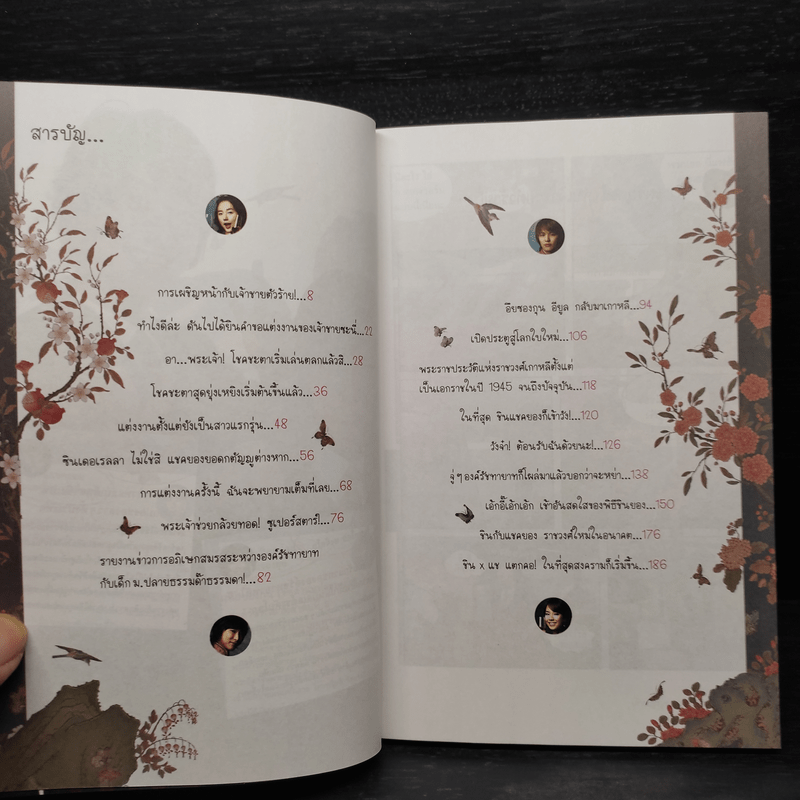 สารบัญ...
การเผชิญหน้ากับเจ้าชายตัวร้าย!...8
ทำไงดีล่ะ ดันไปได้ยินคำขอแต่งงานของเจ้าชายซะนี่...22
อา...พระเจ้า! โชคชะตาเริ่มเล่นตลกแล้วสิ...28
โชคชะตาสุดยุ่งเหยิงเริ่มต้นขึ้นแล้ว...36
แต่งงานตั้งแต่ยังเป็นสาวแรกรุ่น...48
ซินเดอเรลลา ไม่ใช่สิ แชคยองยอดกตัญญูต่างหาก...56
การแต่งงานครั้งนี้ ฉันจะพยายามเต็มที่เลย...68
พระเจ้าช่วยกล้วยทอด! ซูเปอร์สตาร์!...76
รายงานข่าวการอภิเษกสมรสระหว่างองค์รัชทายาท
กับเด็ก ม.ปลายธรรมด๊าธรรมดา!...82
อึยซองกุน อียูล กลับมาเกาหลี...94
เปิดประตูสู่โลกใบใหม่...106
พระราชประวัติแห่งราชวงศ์เกาหลีตั้งแต่
เป็นเอกราชในปี 1945 จนถึงปัจจุบัน...118
ในที่สุด ชินแชคยองก็เข้าวัง!...120
วังจ๋า! ต้อนรับฉันด้วยนะ!...126
จู่ๆ องค์รัชทายาทก็โผล่มาแล้วบอกว่าจะหย่า...138
เอ้กอี๊เอ้กเอ้ก เช้าอันสดใสของพิธีชินยอง...150
ชินกับแชคยอง ราชวงศ์ใหม่ในอนาคต...176
ชิน x แช แตกคอ! ในที่สุดสงครามก็เริ่มขึ้น...186